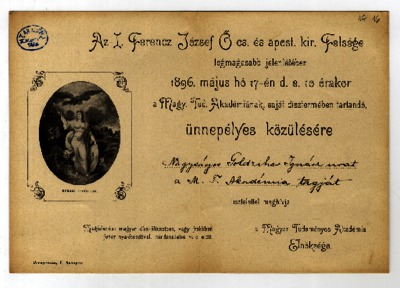 Az I. Ferencz József Ő cs. és apost. kir. Felsége
legmagasabb jelenlétében
1896. május hó 17-én d. e. 10 órakor
a Magy. Tud. Akadémiának, saját dísztermében tartandó,
ünnepélyes közülésére
Nagyságos Goldziher Ignácz urat
a M. T. Akadémia tagját
tisztelettel meghívja
a Magyar Tudományos Akadémia
Elnöksége.
Megjelenés magyar díszöltözetben, vagy frakkban
fehér nyakkendővel